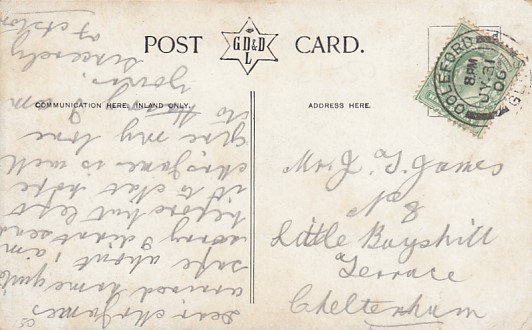 POST CARD.
G D & D
L
COMMUNICATION HERE, INLAND ONLY.
ADDRESS HERE.
COLEFORD
8 PM
JY 31
06
Mr. J. T. James
No 8
Little Bayshill
Terrace
Cheltenham
Dear Mr James
arrived home quite
safe about 1 am
sorry I didnt send
before but left
it to hope
Mrs James is well
give my love
to I am
Yours
Sincerely